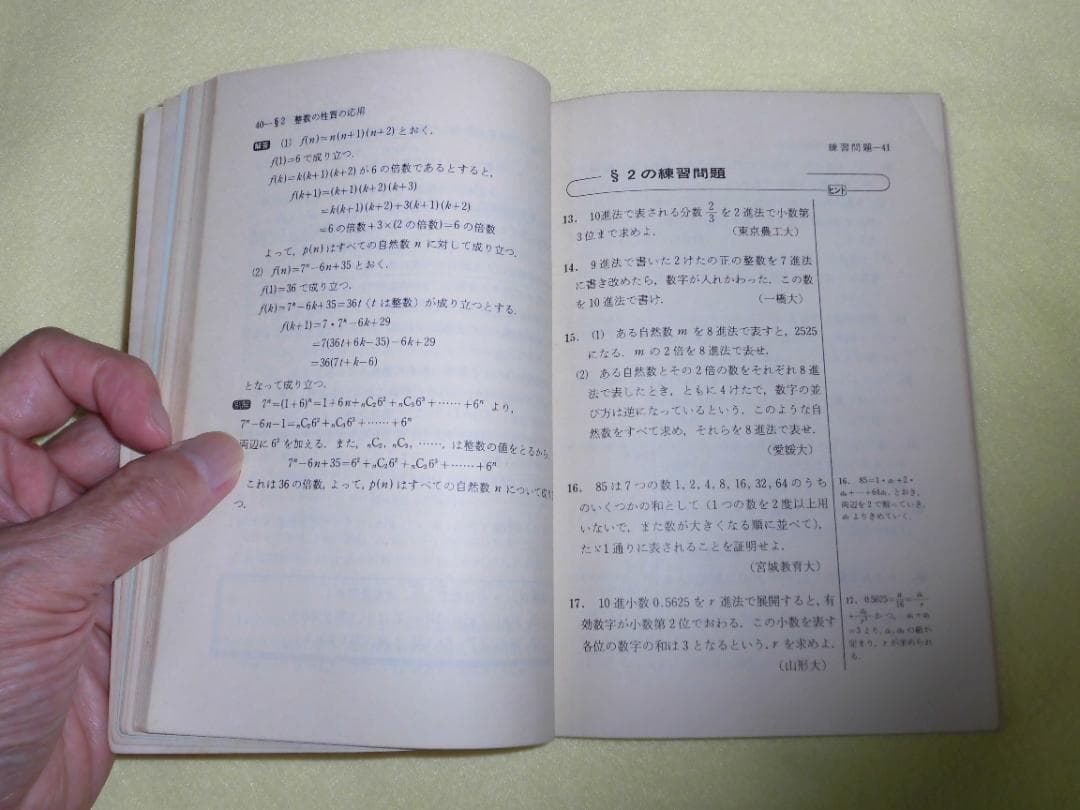 40—§2 整数の性質の応用
解答 (1) f(n)=n(n+1)(n+2)とおく.
f(1)=6で成り立つ.
f(k)=k(k+1)(k+2)が6の倍数であるとすると,
f(k+1)=(k+1)(k+2)(k+3)
=k(k+1)(k+2)+3(k+1)(k+2)
=6の倍数+3×(2の倍数)=6の倍数
よって, p(n)はすべての自然数nに対して成り立つ.
(2) f(n)=7ⁿ−6n+35とおく.
f(1)=36で成り立つ.
f(k)=7ᵏ−6k+35=36t (tは整数)が成り立つとする.
f(k+1)=7・7ᵏ−6k+29
=7(36t+6k−35)−6k+29
=36(7t+k−6)
となって成り立つ.
別解 7ⁿ=(1+6)ⁿ=1+6n+ₙC₂6²+ₙC₃6³+……+6ⁿ より,
7ⁿ−6n−1=ₙC₂6²+ₙC₃6³+……+6ⁿ
両辺に6²を加える. また, ₙC₂, ₙC₃, ……, は整数の値をとるから,
7ⁿ−6n+35=6²+ₙC₂6²+ₙC₃6³+……+6ⁿ
これは36の倍数, よって, p(n)はすべての自然数nについて成り
つ.
練習問題—41
§2の練習問題
ヒント
13. 10進法で表される分数 2/3 を2進法で小数第
3位まで求めよ. (東京農工大)
14. 9進法で書いた2けたの正の整数を7進法
に書き改めたら, 数字が入れかわった. この数
を10進法で書け. (一橋大)
15. (1) ある自然数 m を8進法で表すと, 2525
になる. m の2倍を8進法で表せ.
(2) ある自然数とその2倍の数をそれぞれ8進
法で表したとき, ともに4けたで, 数字の並
び方は逆になっているという. このような自
然数をすべて求め, それらを8進法で表せ.
(愛媛大)
16. 85は7つの数1, 2, 4, 8, 16, 32, 64のうち
のいくつかの和として (1つの数を2度以上用
いないで, また数が大きくなる順に並べて),
たゞ1通りに表されることを証明せよ.
(宮城教育大)
16. 85=1・a₁+2・
両辺を2で割っていき,
よりきめていく.
17. 10進小数0.5625をr進法で展開すると, 有
効数字が小数第2位でおわる. この小数を表す
各位の数字の和は3となるという. rを求めよ.
(山形大)
17. 0.5625=9/16=
かつ,
=3より,
定まり, rが求められ
る.